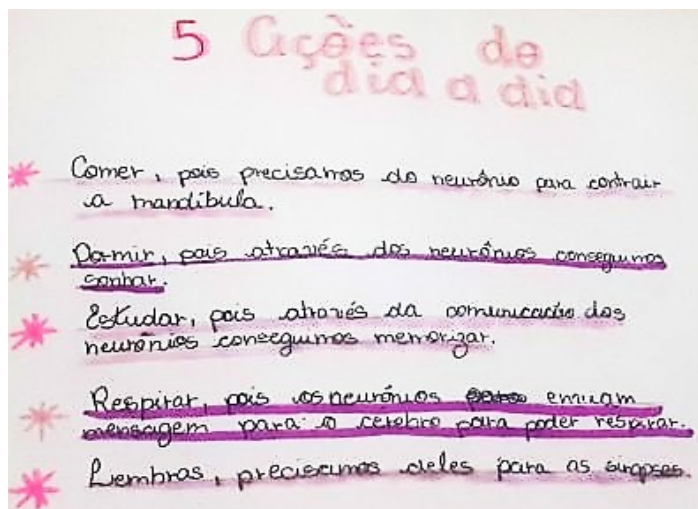 5 Ações do
dia a dia
Comer, pois precisamos do neurônio para contrair
a mandíbula.
Dormir, pois através dos neurônios conseguimos
sonhar.
Estudar, pois através da comunicação dos
neurônios conseguimos memorizar.
Respirar, pois os neurônios enviam
mensagem para o cérebro para poder respirar.
Lembras, precisamos deles para as sinapses.